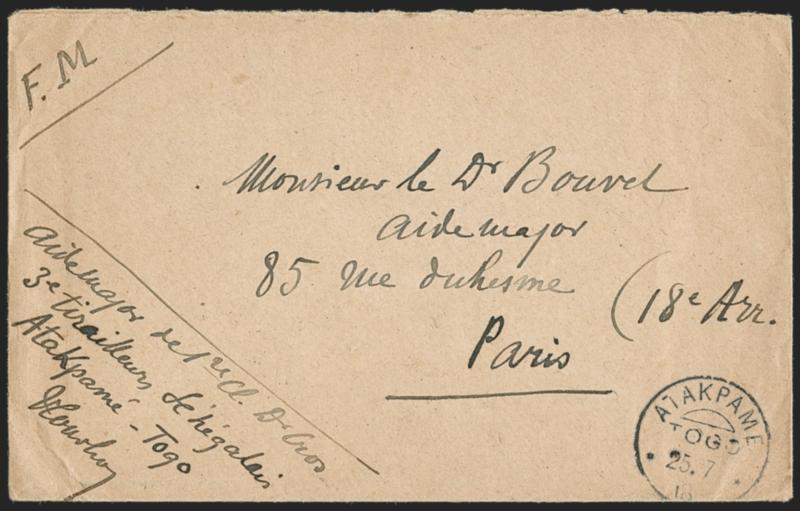 F. M
Monsieur le Dr Bouvet
Aide major
85 rue duhesme
(18e Arr.
Paris
Aide major de 1re Cl. Dr Cros
3e tirailleurs Sénégalais
Atakpamé - Togo
ATAKPAME
TOGO
25. 7